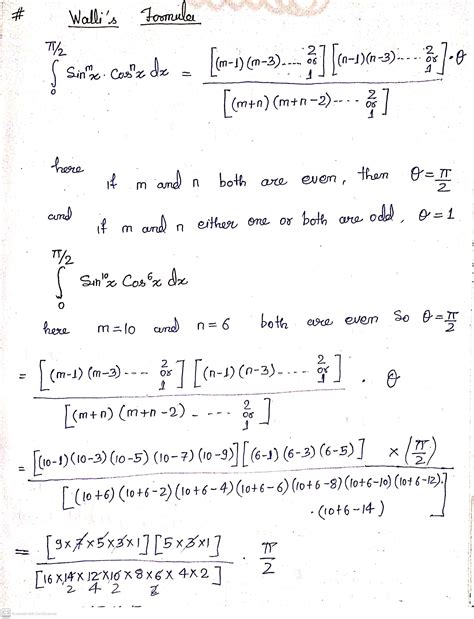 # Walli's Formula
π/2
∫ Sin^m x . Cos^n x dx = [(m-1)(m-3)..... 2 or 1] [(n-1)(n-3)..... 2 or 1] . θ
0
[(m+n)(m+n-2)---- 2 or 1]
here if m and n both are even, then θ = π/2
and if m and n either one or both are odd, θ = 1
π/2
∫ Sin^10 x Cos^6 x dx
0
here m=10 and n=6 both are even so θ = π/2
= [(m-1)(m-3)---- 2 or 1] [(n-1)(n-3)---- 2 or 1] . θ
[(m+n)(m+n-2) - --- 2 or 1]
= [(10-1)(10-3)(10-5)(10-7)(10-9)] [(6-1)(6-3)(6-5)] × (π/2)
[(10+6)(10+6-2)(10+6-4)(10+6-6)(10+6-8)(10+6-10)(10+6-12).
.(10+6-14)]
= [9×7×5×3×1] [5×3×1] . π/2
[16×14×12×10×8×6×4×2]
2 4 2 2